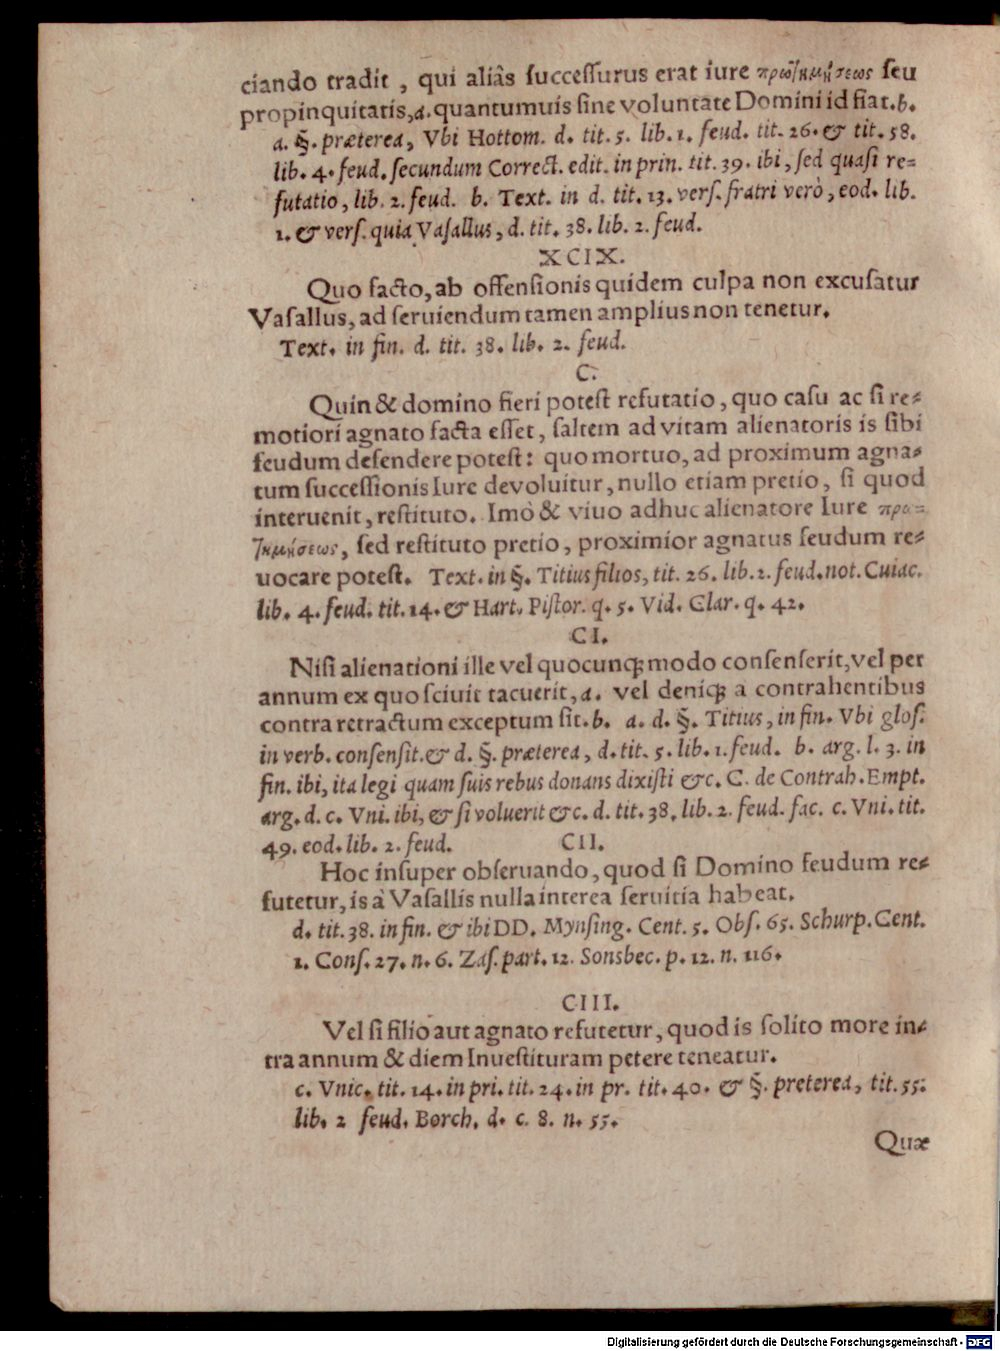 ciando tradit , qui aliâs ſucceſſurus erat iure πρωτιμήσεως ſeu
propinquitatis, a. quantumuis ſine voluntate Domini id fiat. b.
a. §. præterea, Vbi Hottom. d. tit. 5. lib. 1. feud. tit. 26. & tit. 58.
lib. 4. feud. ſecundum Correct. edit. in prin. tit. 39. ibi, ſed quaſi re=
futatio, lib. 2. feud. b. Text. in d. tit. 13. verſ. fratri verò, eod. lib.
1. & verſ. quia Vaſallus, d. tit. 38. lib. 2. feud.
XCIX.
Quo facto, ab offenſionis quidem culpa non excuſatur
Vaſallus, ad ſeruiendum tamen amplius non tenetur.
Text. in fin. d. tit. 38. lib. 2. feud.
C.
Quin & domino fieri poteſt refutatio, quo caſu ac ſi re=
motiori agnato facta eſſet, ſaltem ad vitam alienatoris is ſibi
feudum defendere poteſt: quo mortuo, ad proximum agna=
tum ſucceſſionis Iure devoluitur, nullo etiam pretio, ſi quod
interuenit, reſtituto. Imò & viuo adhuc alienatore Iure πρω=
τιμήσεως, ſed reſtituto pretio, proximior agnatus feudum re=
uocare poteſt. Text. in §. Titius filios, tit. 26. lib. 2. feud. not. Cuiac.
lib. 4. feud. tit. 14. & Hart. Piſtor. q. 5. Vid. Clar. q. 42.
CI.
Niſi alienationi ille vel quocunq; modo conſenſerit, vel per
annum ex quo ſciuit tacuerit, a. vel deniq; a contrahentibus
contra retractum exceptum ſit. b. a. d. §. Titius, in fin. Vbi gloſ.
in verb. conſenſit. & d. §. præterea, d. tit. 5. lib. 1. feud. b. arg. l. 3. in
fin. ibi, ita legi quam ſuis rebus donans dixiſti &c. C. de Contrah. Empt.
arg. d. c. Vni. ibi, & ſi voluerit &c. d. tit. 38. lib. 2. feud. fac. c. Vni. tit.
49. eod. lib. 2. feud. CII.
Hoc inſuper obſeruando, quod ſi Domino feudum re=
futetur, is à Vaſallis nulla interea ſeruitia habeat.
d. tit. 38. in fin. & ibi DD. Mynſing. Cent. 5. Obſ. 65. Schurp. Cent.
1. Conſ. 27. n. 6. Zaſ. part. 12. Sonsbec. p. 12. n. 116.
CIII.
Vel ſi filio aut agnato refutetur, quod is ſolito more in=
tra annum & diem Inueſtituram petere teneatur.
c. Vnic. tit. 14. in pri. tit. 24. in pr. tit. 40. & §. preterea, tit. 55.
lib. 2 feud. Borch. d. c. 8. n. 55.
Quæ
Digitalisierung gefördert durch die Deutsche Forschungsgemeinschaft - DFG